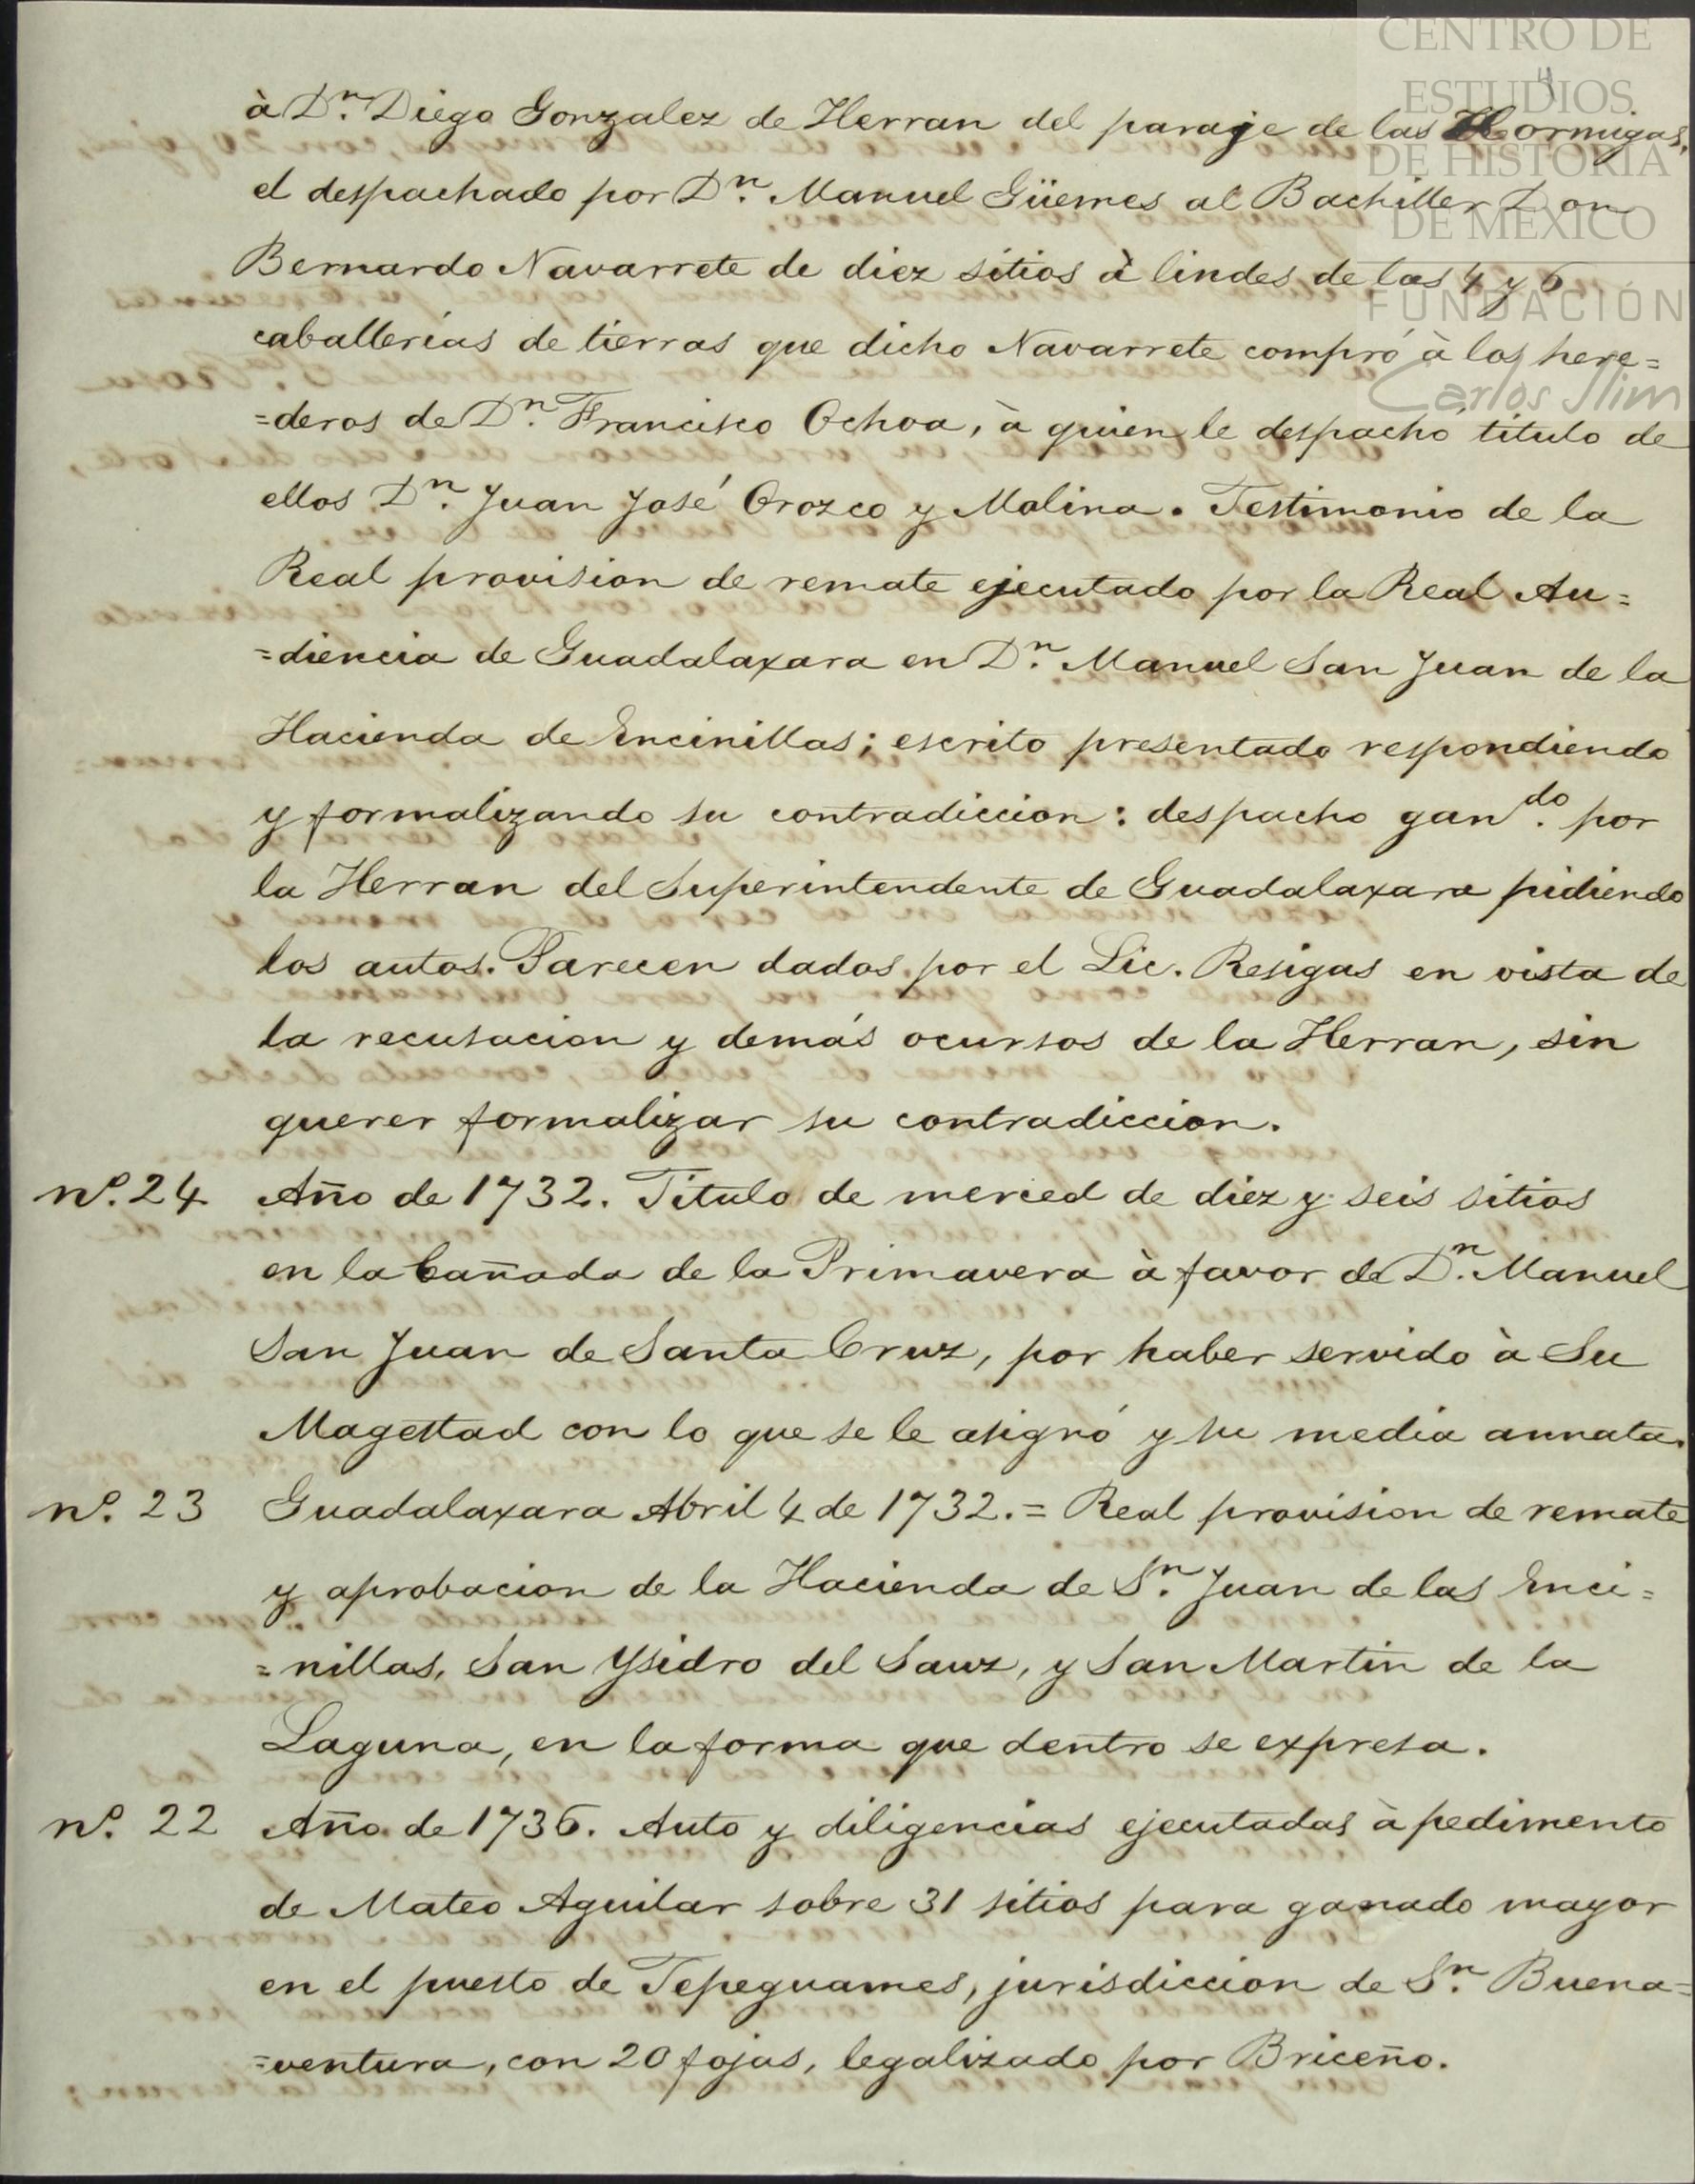 CENTRO DE
ESTUDIOS
DE HISTORIA
DE MÉXICO
FUNDACIÓN
Carlos Slim
à Dn. Diego Gonzalez de Herran del paraje de las Hormigas,
el despachado por Dn. Manuel Güemes al Bachiller Don
Bernardo Navarrete de diez sitios à lindes de las 4 y 6
caballerías de tierras que dicho Navarrete compró à los here=
=deros de Dn. Francisco Ochoa, à quien le despachó titulo de
ellos Dn. Juan José Orozco y Molina. Testimonio de la
Real provision de remate ejecutado por la Real Au=
=diencia de Guadalaxara en Dn. Manuel San Juan de la
Hacienda de Encinillas; escrito presentado respondiendo
y formalizando su contradiccion: despacho gando. por
la Herran del Superintendente de Guadalaxara pidiendo
los autos. Parecen dados por el Lic. Resigas en vista de
la recusacion y demás ocursos de la Herran, sin
querer formalizar su contradiccion.
no. 24 Año de 1732. Titulo de merced de diez y seis sitios
en la Cañada de la Primavera à favor de Dn. Manuel
San Juan de Santa Cruz, por haber servido à Su
Magestad con lo que se le asignó y su media annata.
no. 23 Guadalaxara Abril 4 de 1732.= Real provision de remate
y aprobacion de la Hacienda de Sn. Juan de las Enci=
=nillas, San Ysidro del Sauz, y San Martin de la
Laguna, en la forma que dentro se expresa.
no. 22 Año de 1736. Auto y diligencias ejecutadas à pedimento
de Mateo Aguilar sobre 31 sitios para ganado mayor
en el puesto de Tepeguames, jurisdiccion de Sn. Buena=
=ventura, con 20 fojas, legalizado por Briceño.